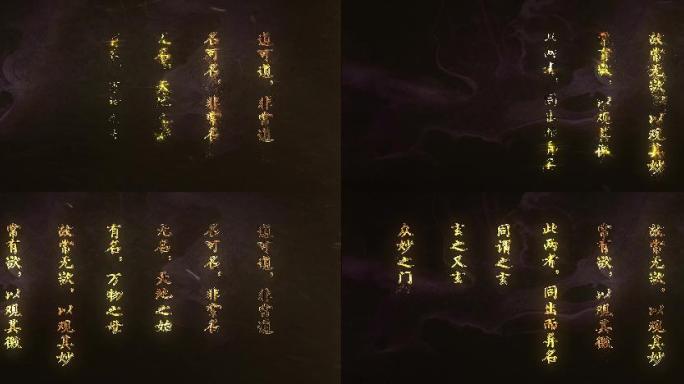 道可道。非常道
名可名。非常名
无名。天地之始
故常无欲。以观其妙
常有欲。以观其徼
此两者。同出而异名
道可道。非常道
名可名。非常名
无名。天地之始
有名。万物之母
故常无欲。以观其妙
常有欲。以观其徼
故常无欲。以观其妙
常有欲。以观其徼
此两者。同出而异名
同谓之玄
玄之又玄
众妙之门